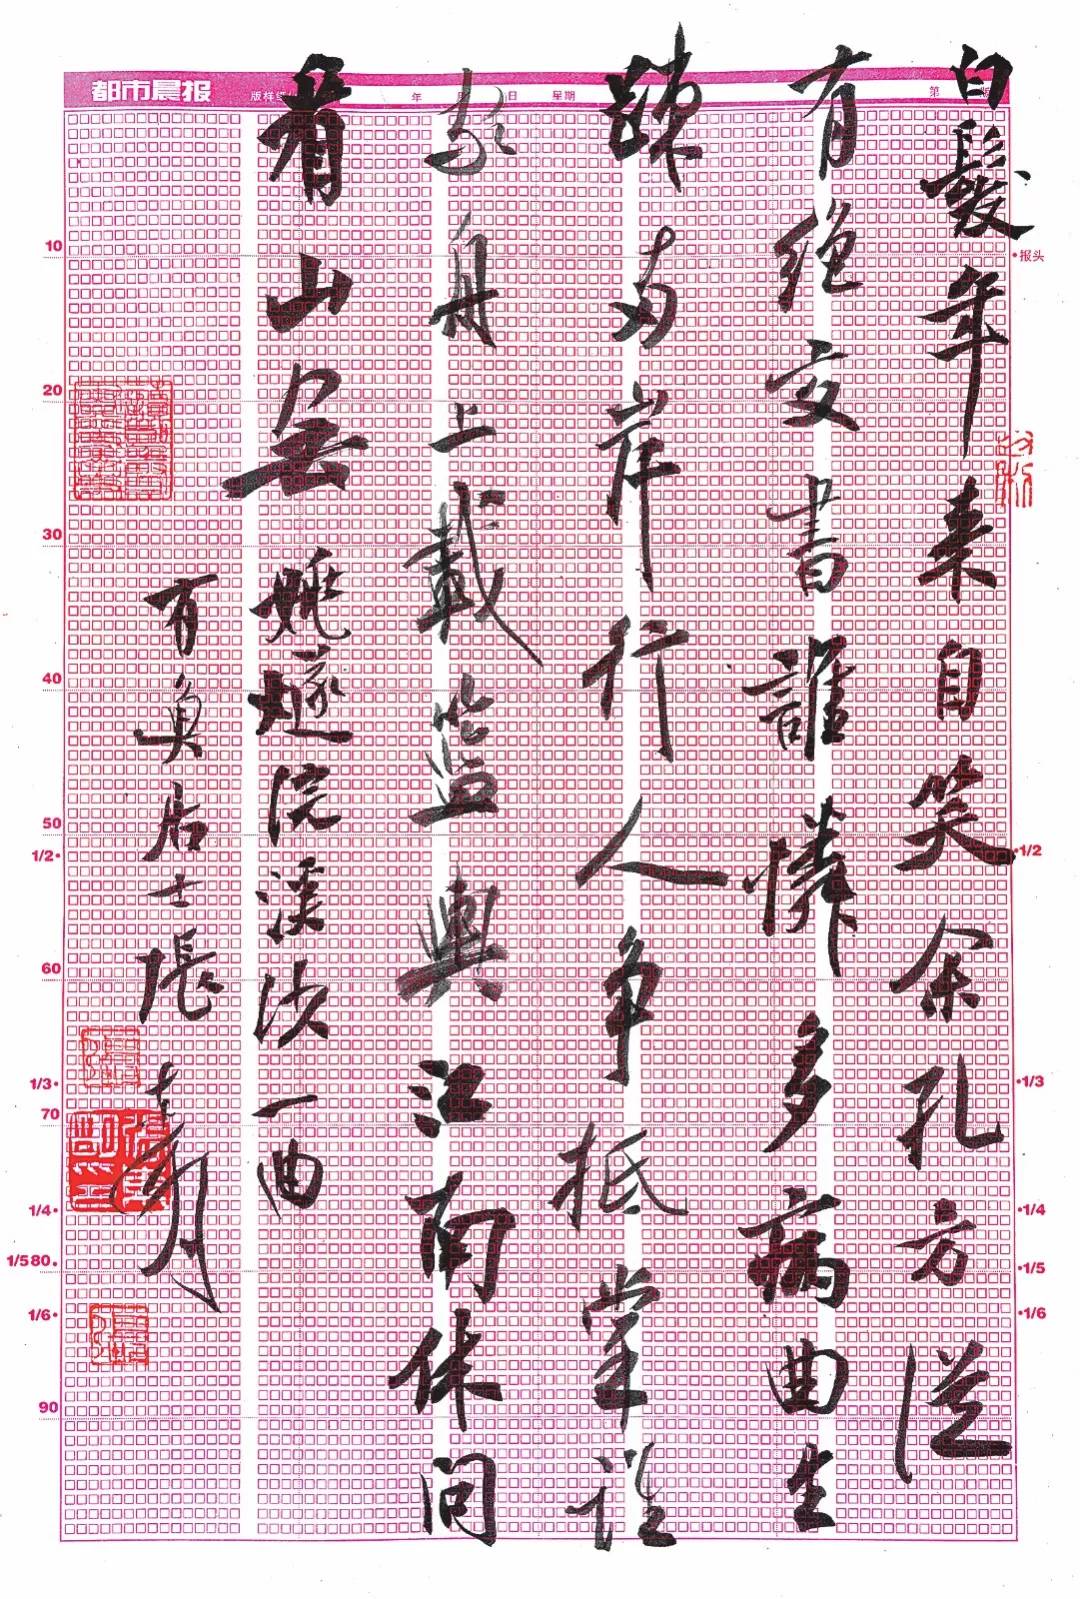 都市晨报 版样 年 日 星期 第 版
白髮年来自笑余孔方從
有絕交書誰憐多病曲生
踈兩岸行人争抵掌誰
家舟上載籃輿江南休問
看山無 姚燧浣溪沙一曲
居士張
报头
10
20
30
40
50
1/2
60
1/3
70
1/4
1/5 80
1/6
90
1/2
1/3
1/4
1/5
1/6